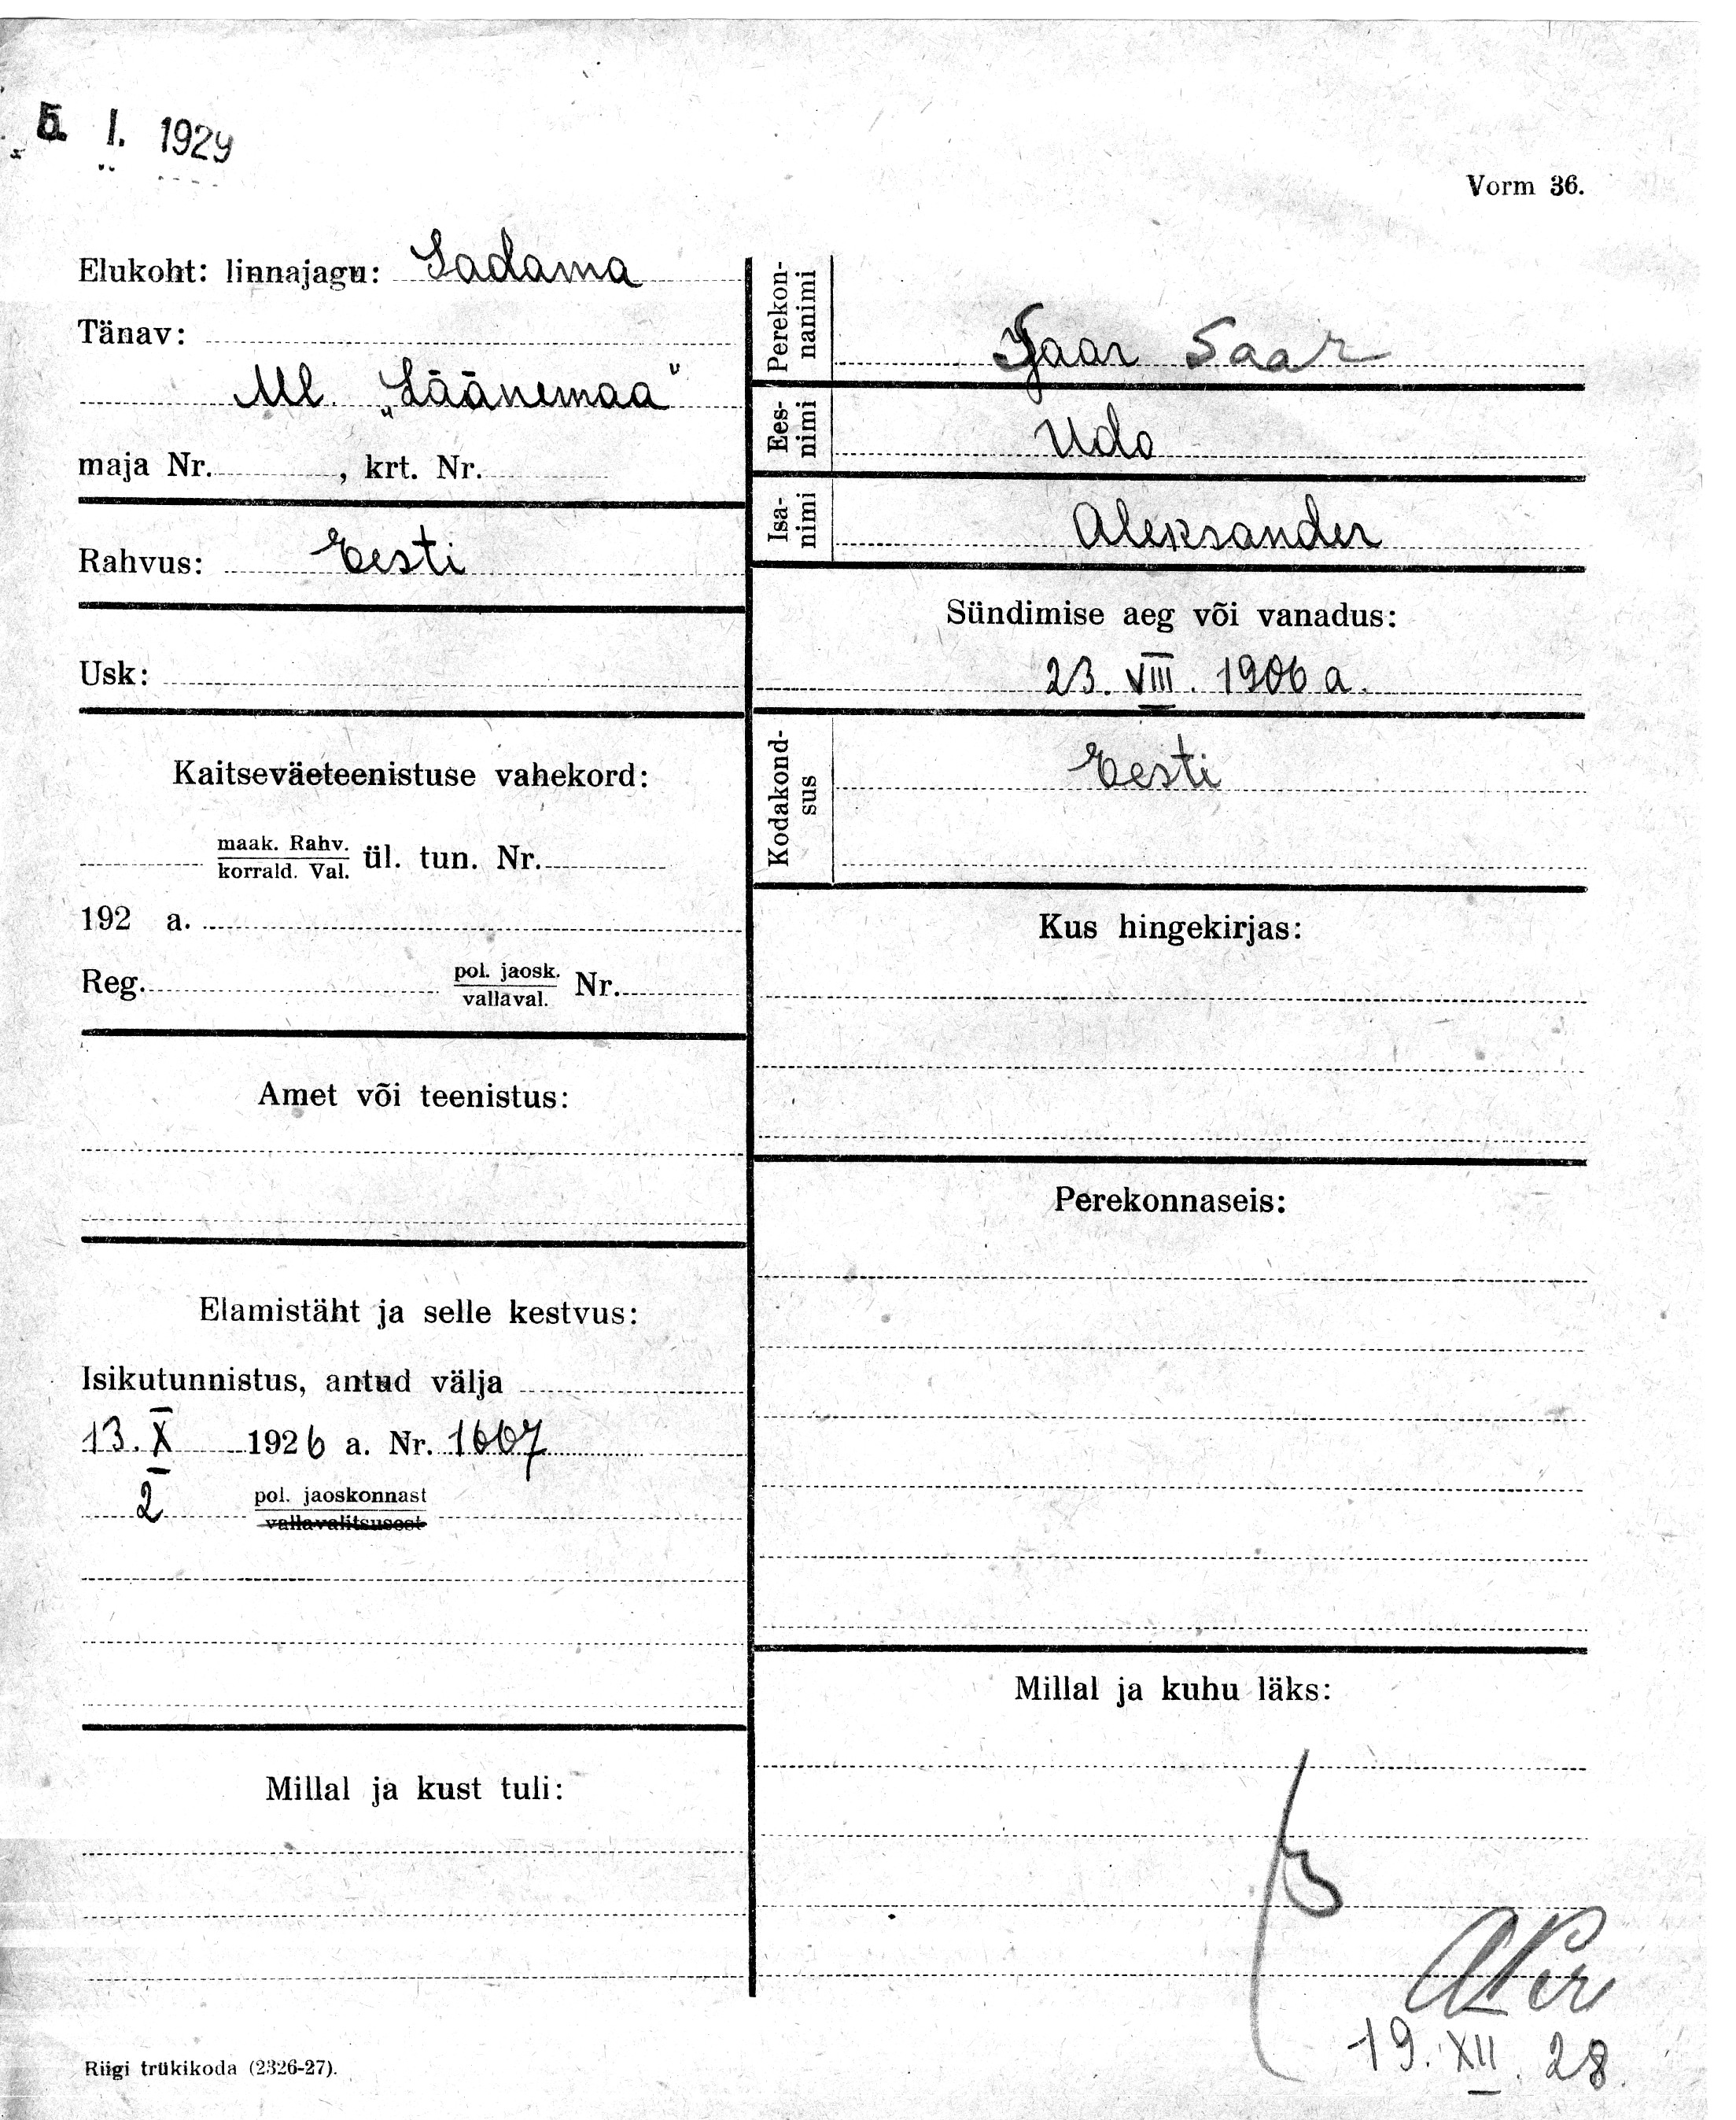 5. I. 1929
Vorm 36.
Elukoht: linnajagu: Sadama
Tänav:
Ml. „Läänemaa"
maja Nr. , krt. Nr.
Rahvus: Eesti
Usk:
Kaitseväeteenistuse vahekord:
maak. Rahv.
korrald. Val. ül. tun. Nr.
192 a.
Reg. pol. jaosk.
vallaval. Nr.
Amet või teenistus:
Elamistäht ja selle kestvus:
Isikutunnistus, antud välja
13. X 1926 a. Nr. 1667
2 pol. jaoskonnast
vallavalitsusest
Millal ja kust tuli:
Perekon-
nanimi Saar Saar
Ees-
nimi Udo
Isa-
nimi Aleksander
Sündimise aeg või vanadus:
23. VIII. 1906 a.
Kodakond-
sus Eesti
Kus hingekirjas:
Perekonnaseis:
Millal ja kuhu läks:
19. XII. 28.
Riigi trükikoda (2326-27).